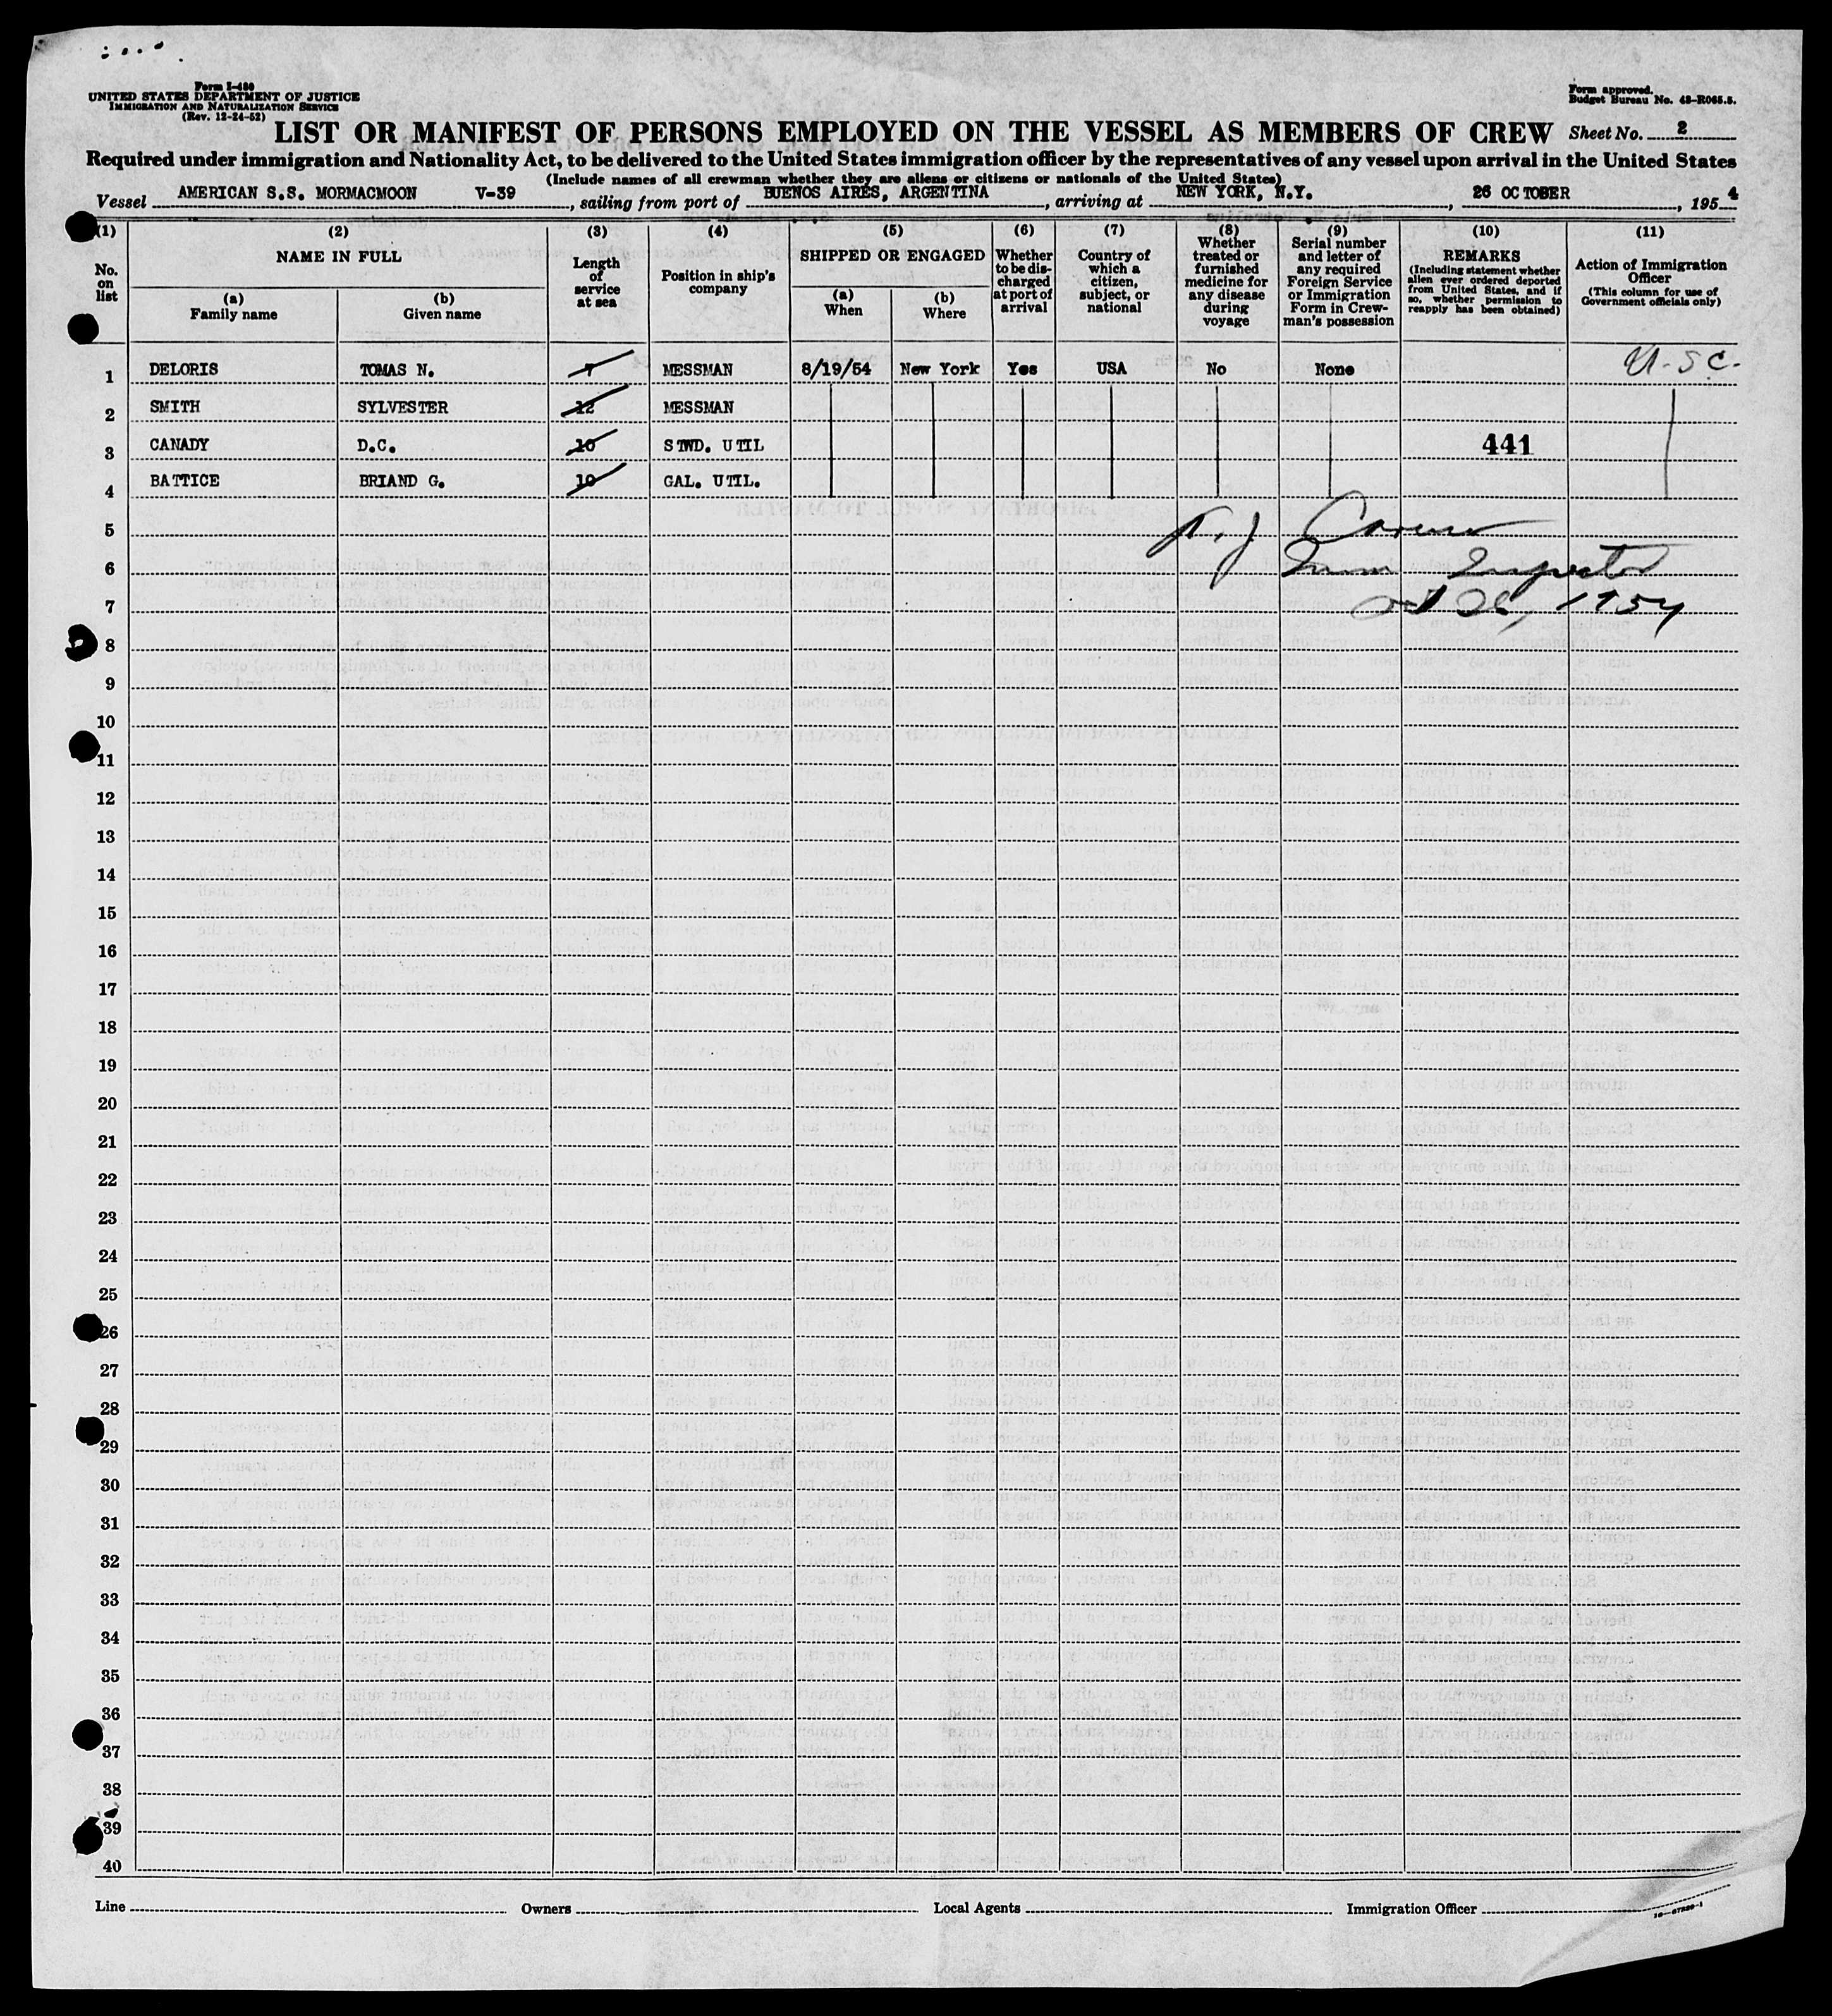 Form I-480
UNITED STATES DEPARTMENT OF JUSTICE
IMMIGRATION AND NATURALIZATION SERVICE
(Rev. 12-24-52)
Form approved.
Budget Bureau No. 43-R065.5.
LIST OR MANIFEST OF PERSONS EMPLOYED ON THE VESSEL AS MEMBERS OF CREW Sheet No. 2
Required under immigration and Nationality Act, to be delivered to the United States immigration officer by the representatives of any vessel upon arrival in the United States
(Include names of all crewman whether they are aliens or citizens or nationals of the United States)
Vessel AMERICAN S.S. MORMACMOON V-39, sailing from port of BUENOS AIRES, ARGENTINA, arriving at NEW YORK, N.Y., 26 OCTOBER, 1954
(1) No. on list
(2) NAME IN FULL
(a) Family name
(b) Given name
(3) Length of service at sea
(4) Position in ship's company
(5) SHIPPED OR ENGAGED
(a) When
(b) Where
(6) Whether to be discharged at port of arrival
(7) Country of which a citizen, subject, or national
(8) Whether treated or furnished medicine for any disease during voyage
(9) Serial number and letter of any required Foreign Service or Immigration Form in Crewman's possession
(10) REMARKS (Including statement whether alien ever ordered deported from United States, and if so, whether permission to reapply has been obtained)
(11) Action of Immigration Officer (This column for use of Government officials only)
1 DELORIS TOMAS N. 7 MESSMAN 8/19/54 New York Yes USA No None U.S.C.
2 SMITH SYLVESTER 12 MESSMAN
3 CANADY D.C. 10 STWD. UTIL 441
4 BATTICE BRIAND G. 10 GAL. UTIL.
5
6 Imm Inspector
7 Oct 26, 1954
8
9
10
11
12
13
14
15
16
17
18
19
20
21
22
23
24
25
26
27
28
29
30
31
32
33
34
35
36
37
38
39
40
Line Owners Local Agents Immigration Officer